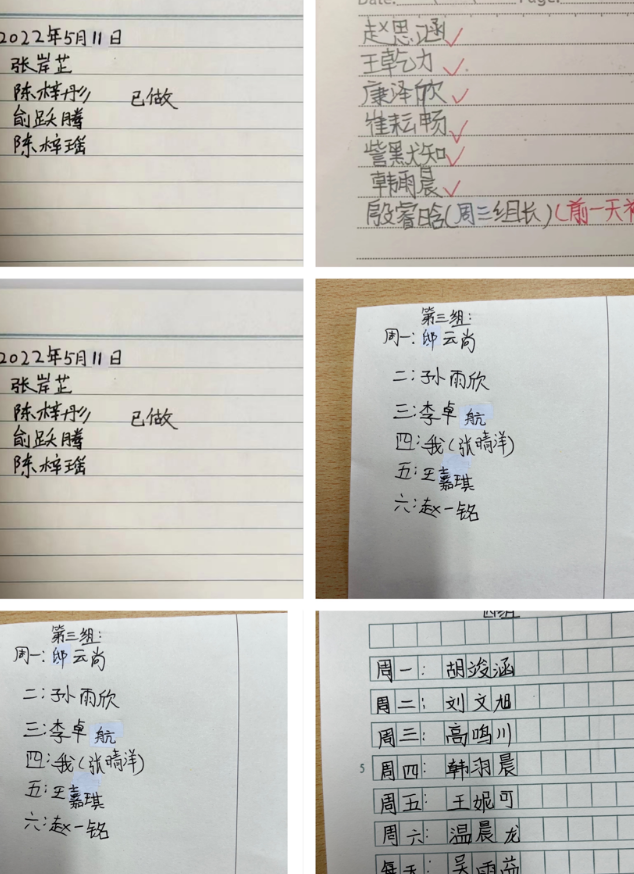 2022年5月11日
张岸芷
陈梓彤 已做
俞跃腾
陈梓瑶
Date:
赵思涵
王乾力
康泽欣
崔耘畅
訾默知
韩雨晨
殷睿晗(周三组长)(前一天
2022年5月11日
张岸芷
陈梓彤 已做
俞跃腾
陈梓瑶
第三组:
周一:邸云尚
二:孙雨欣
三:李卓航
四:我(张晴洋)
五:王嘉琪
六:赵一铭
第三组:
周一:邸云尚
二:孙雨欣
三:李卓航
四:我(张晴洋)
五:王嘉琪
六:赵一铭
四组
周一:胡竣涵
周二:刘文旭
周三:高鸣川
5 周四:韩羽晨
周五:王妮可
周六:温晨龙
每天:吴雨益